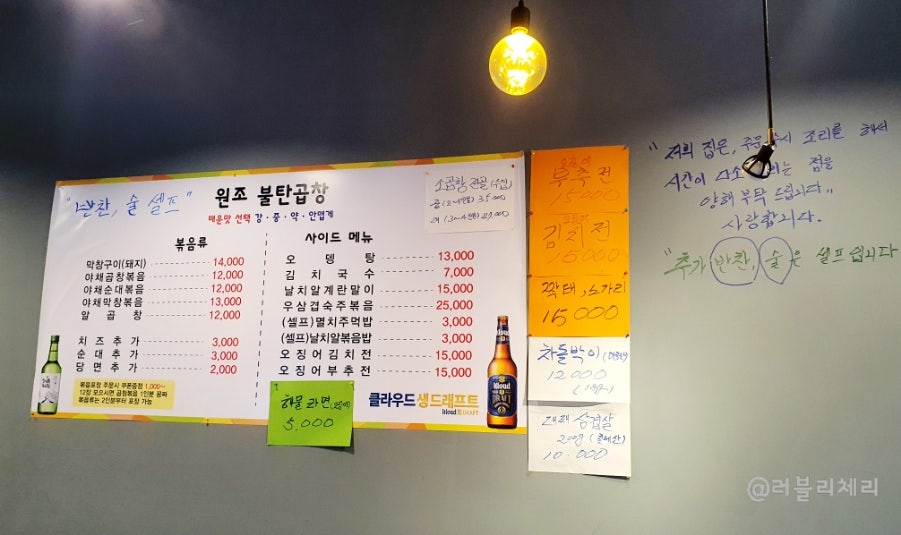 "반찬, 술 셀프"
원조 불탄곱창
매운맛 선택 강·중·약·안맵게
소곱창 전골
볶음류
막창구이(돼지) 14,000
야채곱창볶음 12,000
야채순대볶음 12,000
야채막창볶음 13,000
알곱창 12,000
치즈추가 3,000
순대추가 3,000
당면추가 2,000
볶음포장 주문시 쿠폰증정 1,000~
12장 모으시면 곱창볶음 1인분 공짜
볶음류는 2인분부터 포장 가능
사이드 메뉴
오뎅탕 13,000
김치국수 7,000
날치알계란말이 15,000
우삼겹숙주볶음 25,000
(셀프)멸치주먹밥 3,000
(셀프)날치알볶음밥 3,000
오징어김치전 15,000
오징어부추전 15,000
클라우드 생드래프트
Kloud DRAFT
Kloud
DRAFT
해물라면
5,000
오징어
부추전
15,000
오징어
김치전
15,000
먹태, 노가리
15,000
차돌박이
12,000
대패 삼겹살
200g (국내산)
10,000
"저희 집은, 주문 즉시 조리를 해서
시간이 다소 걸리는 점을
양해 부탁 드립니다."
사랑합니다.
"추가 반찬, 술은 셀프입니다
@러블리체리